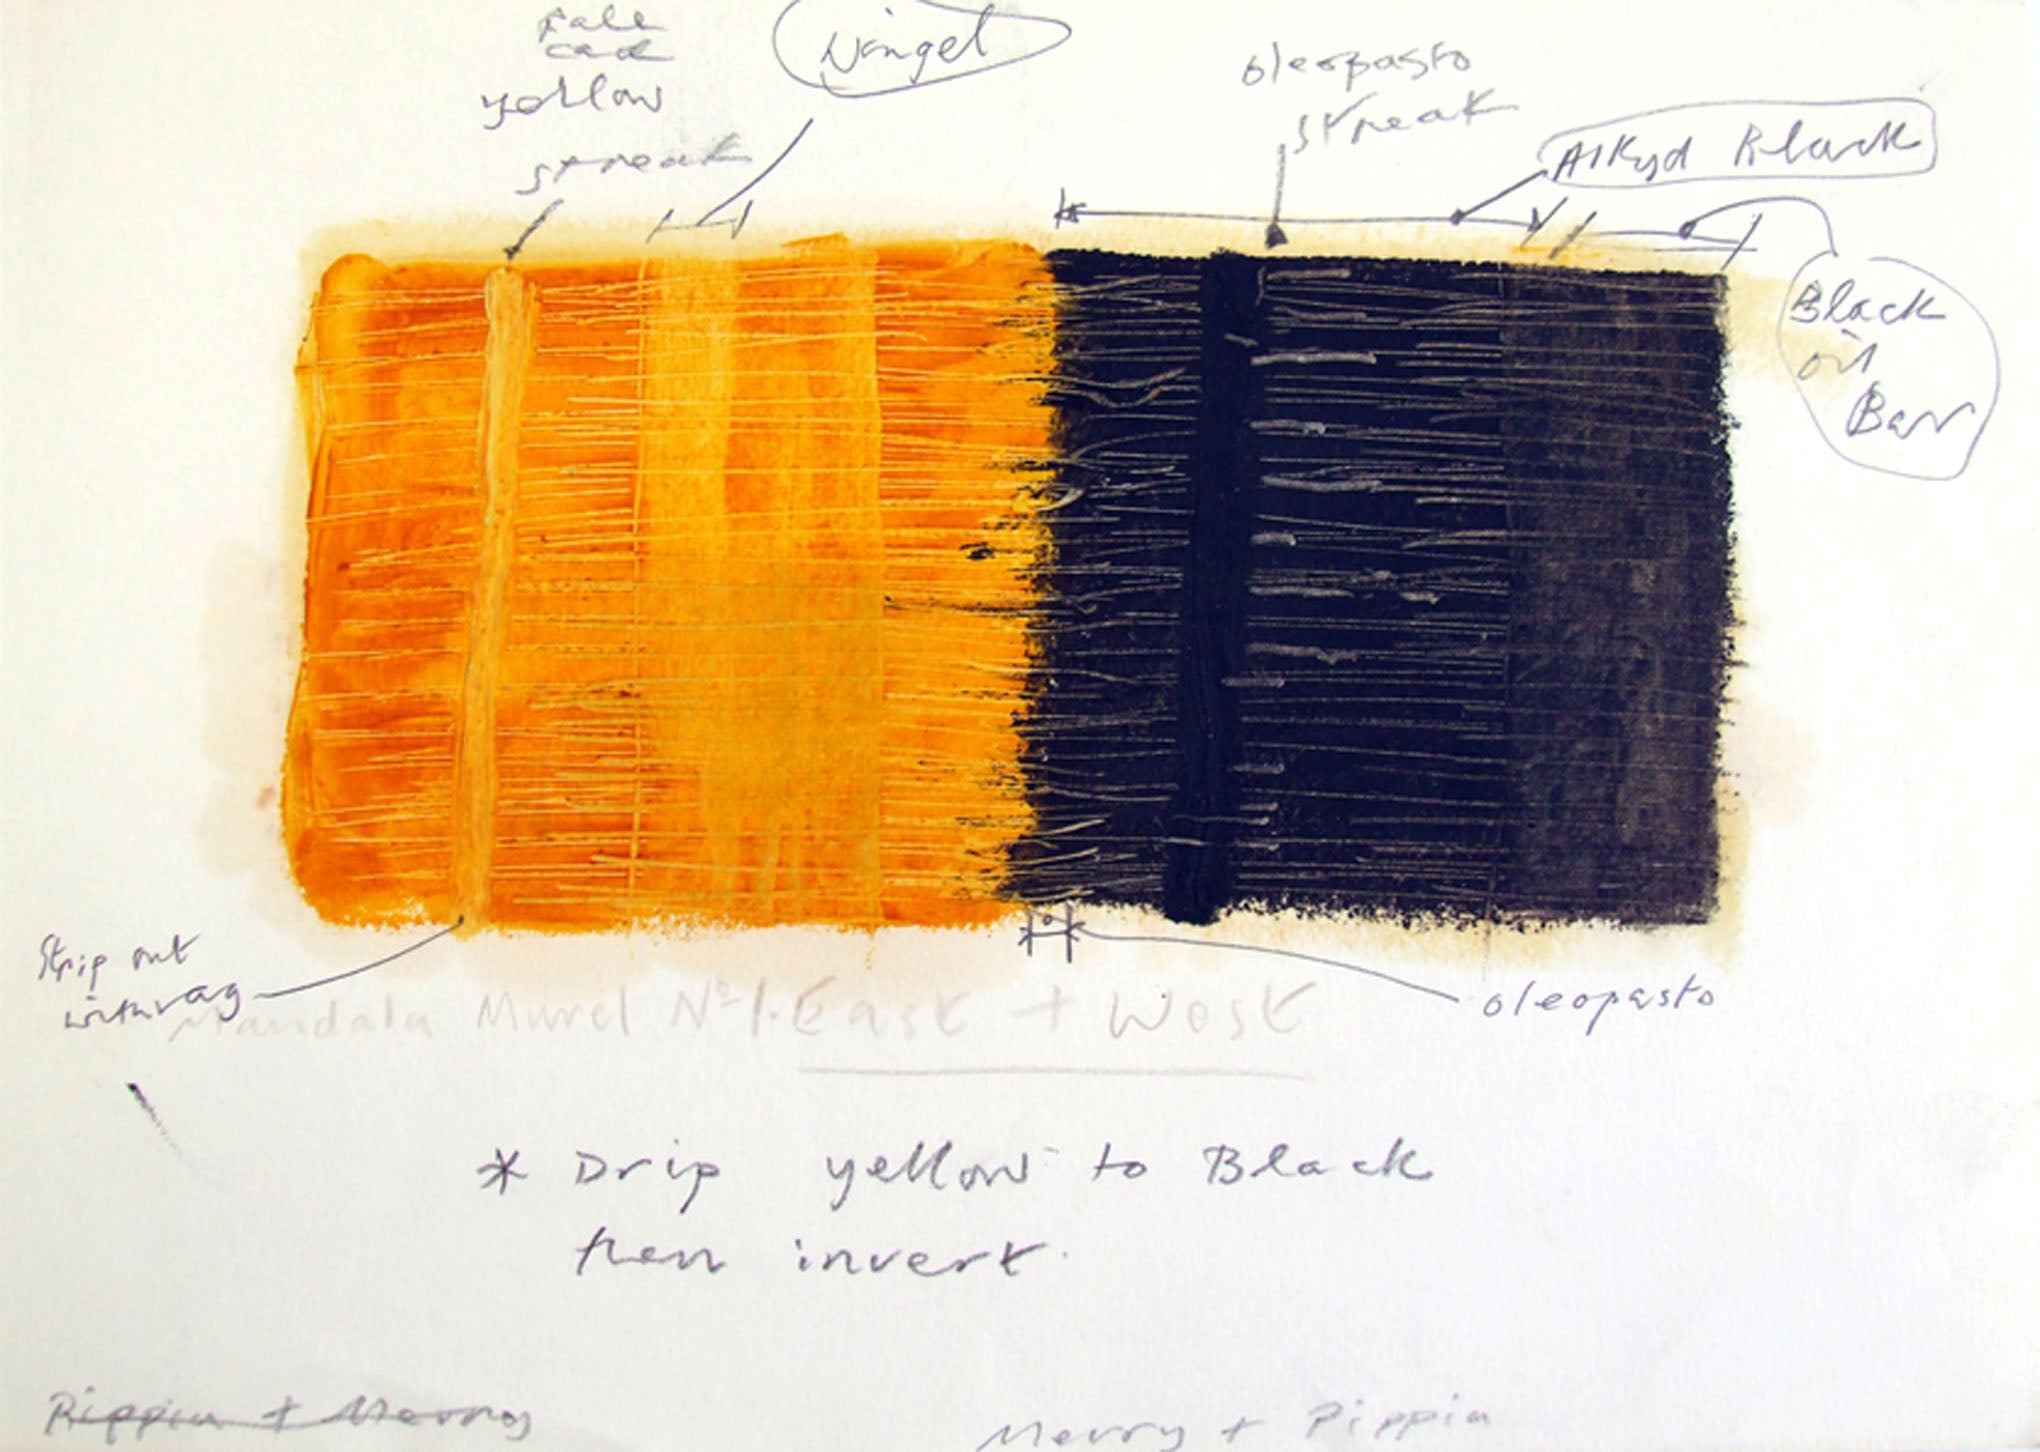 Pale
cad
yellow
streak
Wingel
oleopasto
streak
Alkyd Black
Black
oil
Bar
Strip out
with rag
oleopasto
Mandala Murel No 1. East + West
* Drip yellow to Black
then invert.
Pippin + Merry
Merry + Pippin